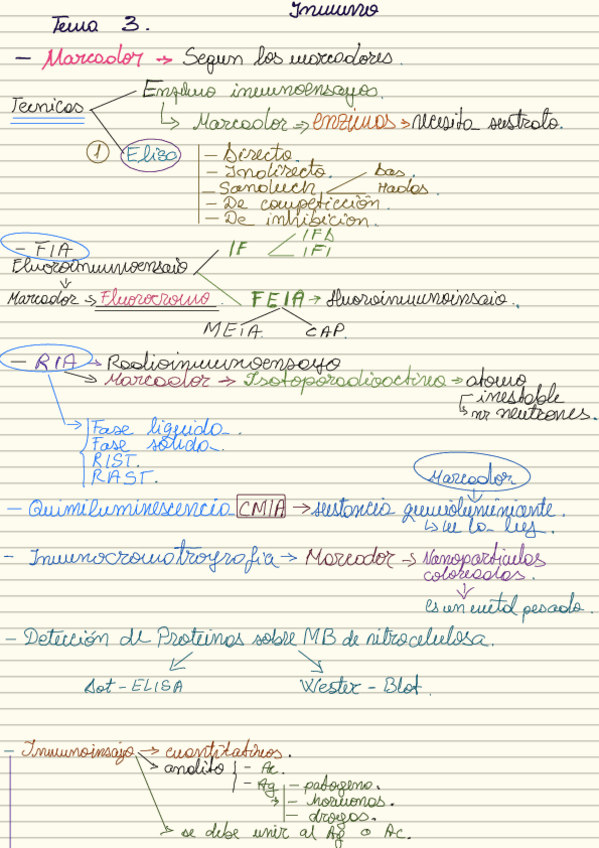 Inmuno
Tema 3.
- Marcador → Segun los marcadores.
Tecnicas
Enzimo inmunoensayos.
Marcador → enzimas → necesita sustrato.
① Elisa
- Directo.
- Indirecto.
- Sandwich
Das.
Hadas.
- De competiccion.
- De inhibicion.
- FIA
IF
IFD
IFI
Fluoroinmunoensaio
Marcador → Fluorocromo.
FEIA → fluoroinmunoinsaio.
MEIA. CAP.
- RIA → Radioinmunoensayo
→ Marcador → Isotoporadioactivo → atomo
inestable
nr neutrones.
Fase liquida.
Fase solida.
RIST.
RAST.
Marcador
- Quimiluminescencia CMIA → sustancia quimioluminiscente.
la luz.
- Inmunocromatrografia → Marcador → Nanoparticulas
coloreadas.
es un metal pesado.
- Detección de Proteinas sobre MB de nitrocelulosa.
Dot - ELISA
Wester - Blot.
- Inmunoinsajo → cuantitativos.
analito
- Ac.
- Ag
- patogeno.
- hormonas.
- drogas.
se debe unir al Ag o Ac.